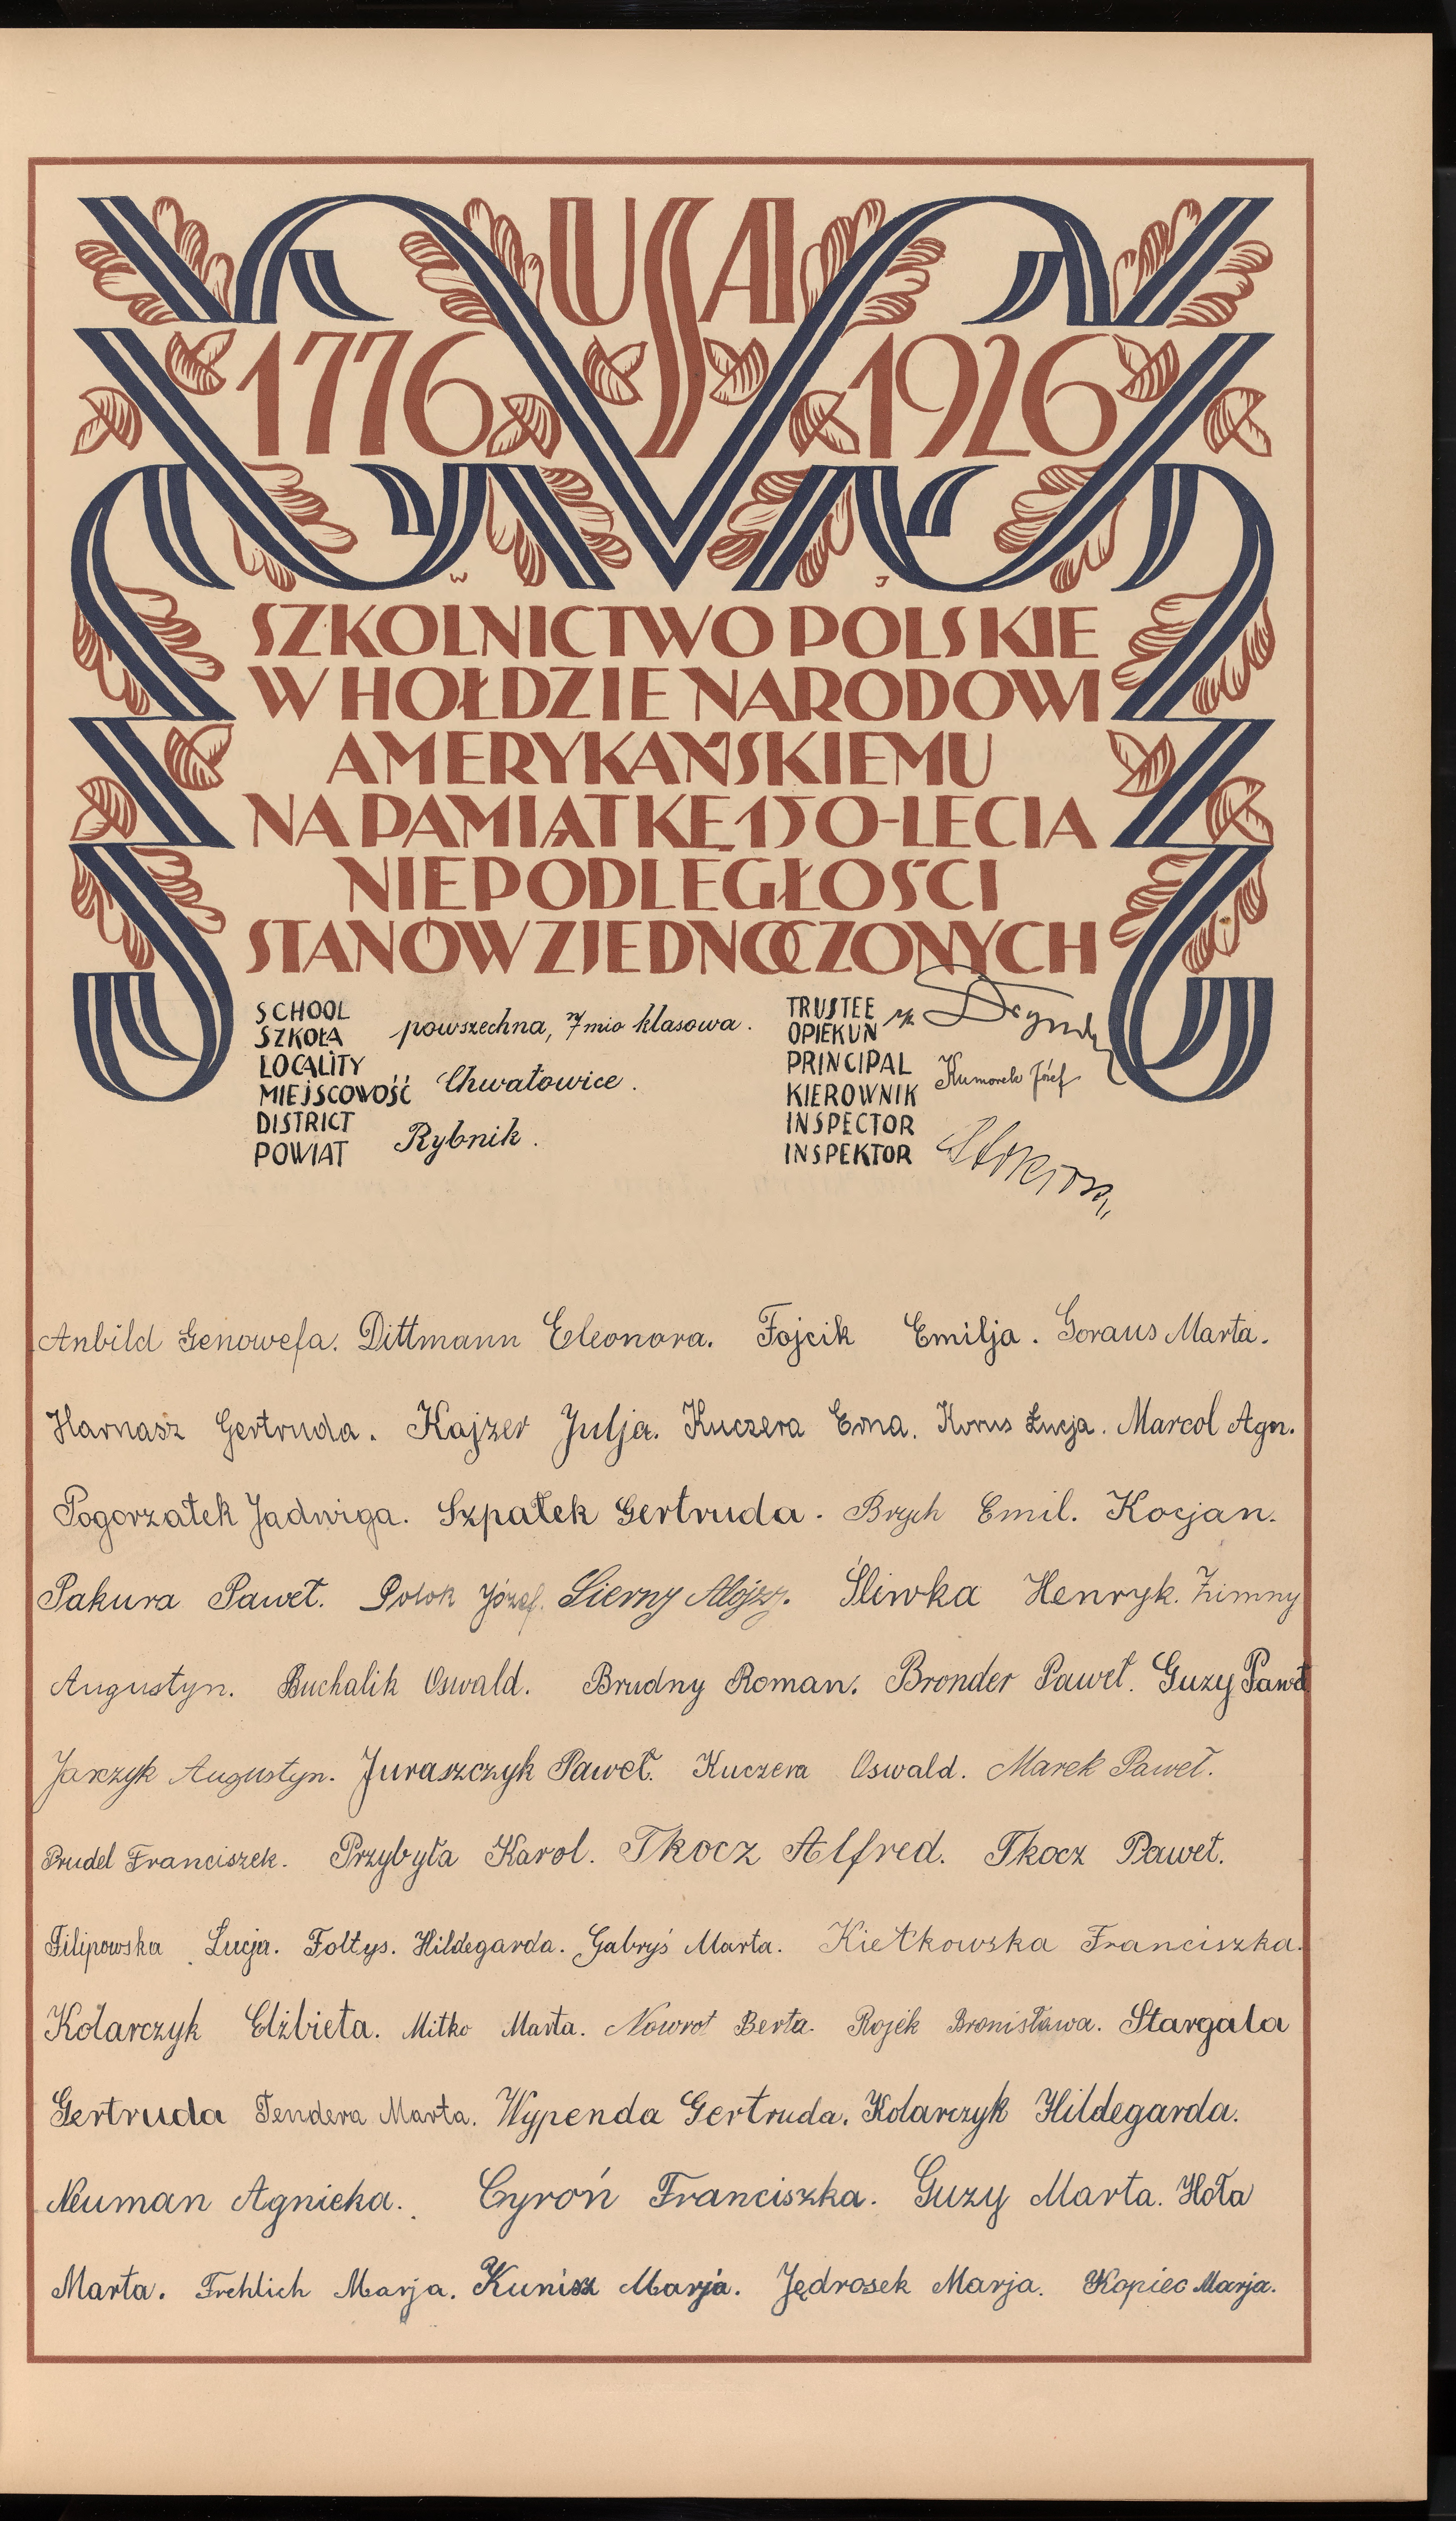 USA
1776 1926
W J
SZKOLNICTWO POLSKIE
W HOŁDZIE NARODOWI
AMERYKAŃSKIEMU
NA PAMIĄTKĘ 150-LECIA
NIEPODLEGŁOŚCI
STANÓW ZJEDNOCZONYCH
SCHOOL
SZKOŁA powszechna, 7mio klasowa.
LOCALITY
MIEJSCOWOŚĆ Chwałowice.
DISTRICT
POWIAT Rybnik.
TRUSTEE
OPIEKUN
PRINCIPAL
KIEROWNIK Kumorek Józef
INSPECTOR
INSPEKTOR
Anbild Genowefa. Dittmann Eleonora. Fojcik Emilja. Goraus Marta.
Harnasz Gertruda. Kajzer Julja. Kuczera Erna. Korus Łucja. Marcol Agn.
Pogorzałek Jadwiga. Szpałek Gertruda. Brzych Emil. Kocjan.
Pakura Paweł. Polok Józef. Sierny Alojzy. Śliwka Henryk. Zimny
Augustyn. Buchalik Oswald. Brudny Roman. Bronder Paweł. Guzy Paweł
Jarczyk Augustyn. Juraszczyk Paweł. Kuczera Oswald. Marek Paweł.
Prudel Franciszek. Przybyła Karol. Tkocz Alfred. Tkocz Paweł.
Filipowska Łucja. Foltys. Hildegarda. Gabryś Marta. Kiełkowska Franciszka.
Kolarczyk Elżbieta. Mitko Marta. Nowrot Berta. Rojek Bronisława. Stargala
Gertruda Tendera Marta. Wypenda Gertruda. Kolarczyk Hildegarda.
Neuman Agnieka. Cyroń Franciszka. Guzy Marta. Hoła
Marta. Frehlich Marja. Kunisz Marja. Jędrosek Marja. Kopiec Marja.